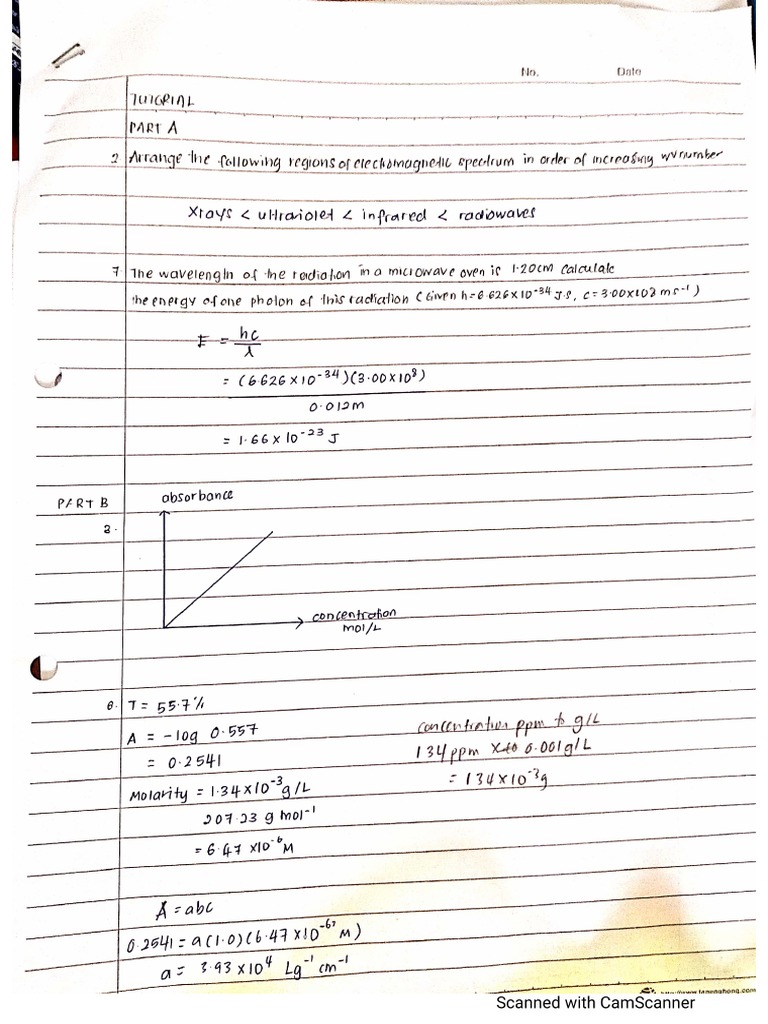 No. Date
TUTORIAL
PART A
2. Arrange the following regions of electromagnetic spectrum in order of increasing wvnumber
Xrays < ultraviolet < infrared < radiowaves
7. The wavelength of the radiation in a microwave oven is 1.20cm calculate
the energy of one photon of this radiation (Given h=6.626×10⁻³⁴ J.s, c=3.00×108 ms⁻¹)
E = hc
λ
= (6.626 × 10⁻³⁴)(3.00×10⁸)
0.012m
= 1.66 × 10⁻²³ J
PART B
absorbance
3.
concentration
mol/L
6. T = 55.7%
A = -log 0.557
= 0.2541
Molarity = 1.34×10⁻³ g/L
207.23 g mol⁻¹
= 6.47 ×10⁻⁶ M
concentration ppm to g/L
134 ppm × 0.001g/L
= 134×10⁻³g
A = abc
0.2541 = a(1.0)(6.47 ×10⁻⁶ M)
a = 3.93 ×10⁴ Lg⁻¹ cm⁻¹
Scanned with CamScanner